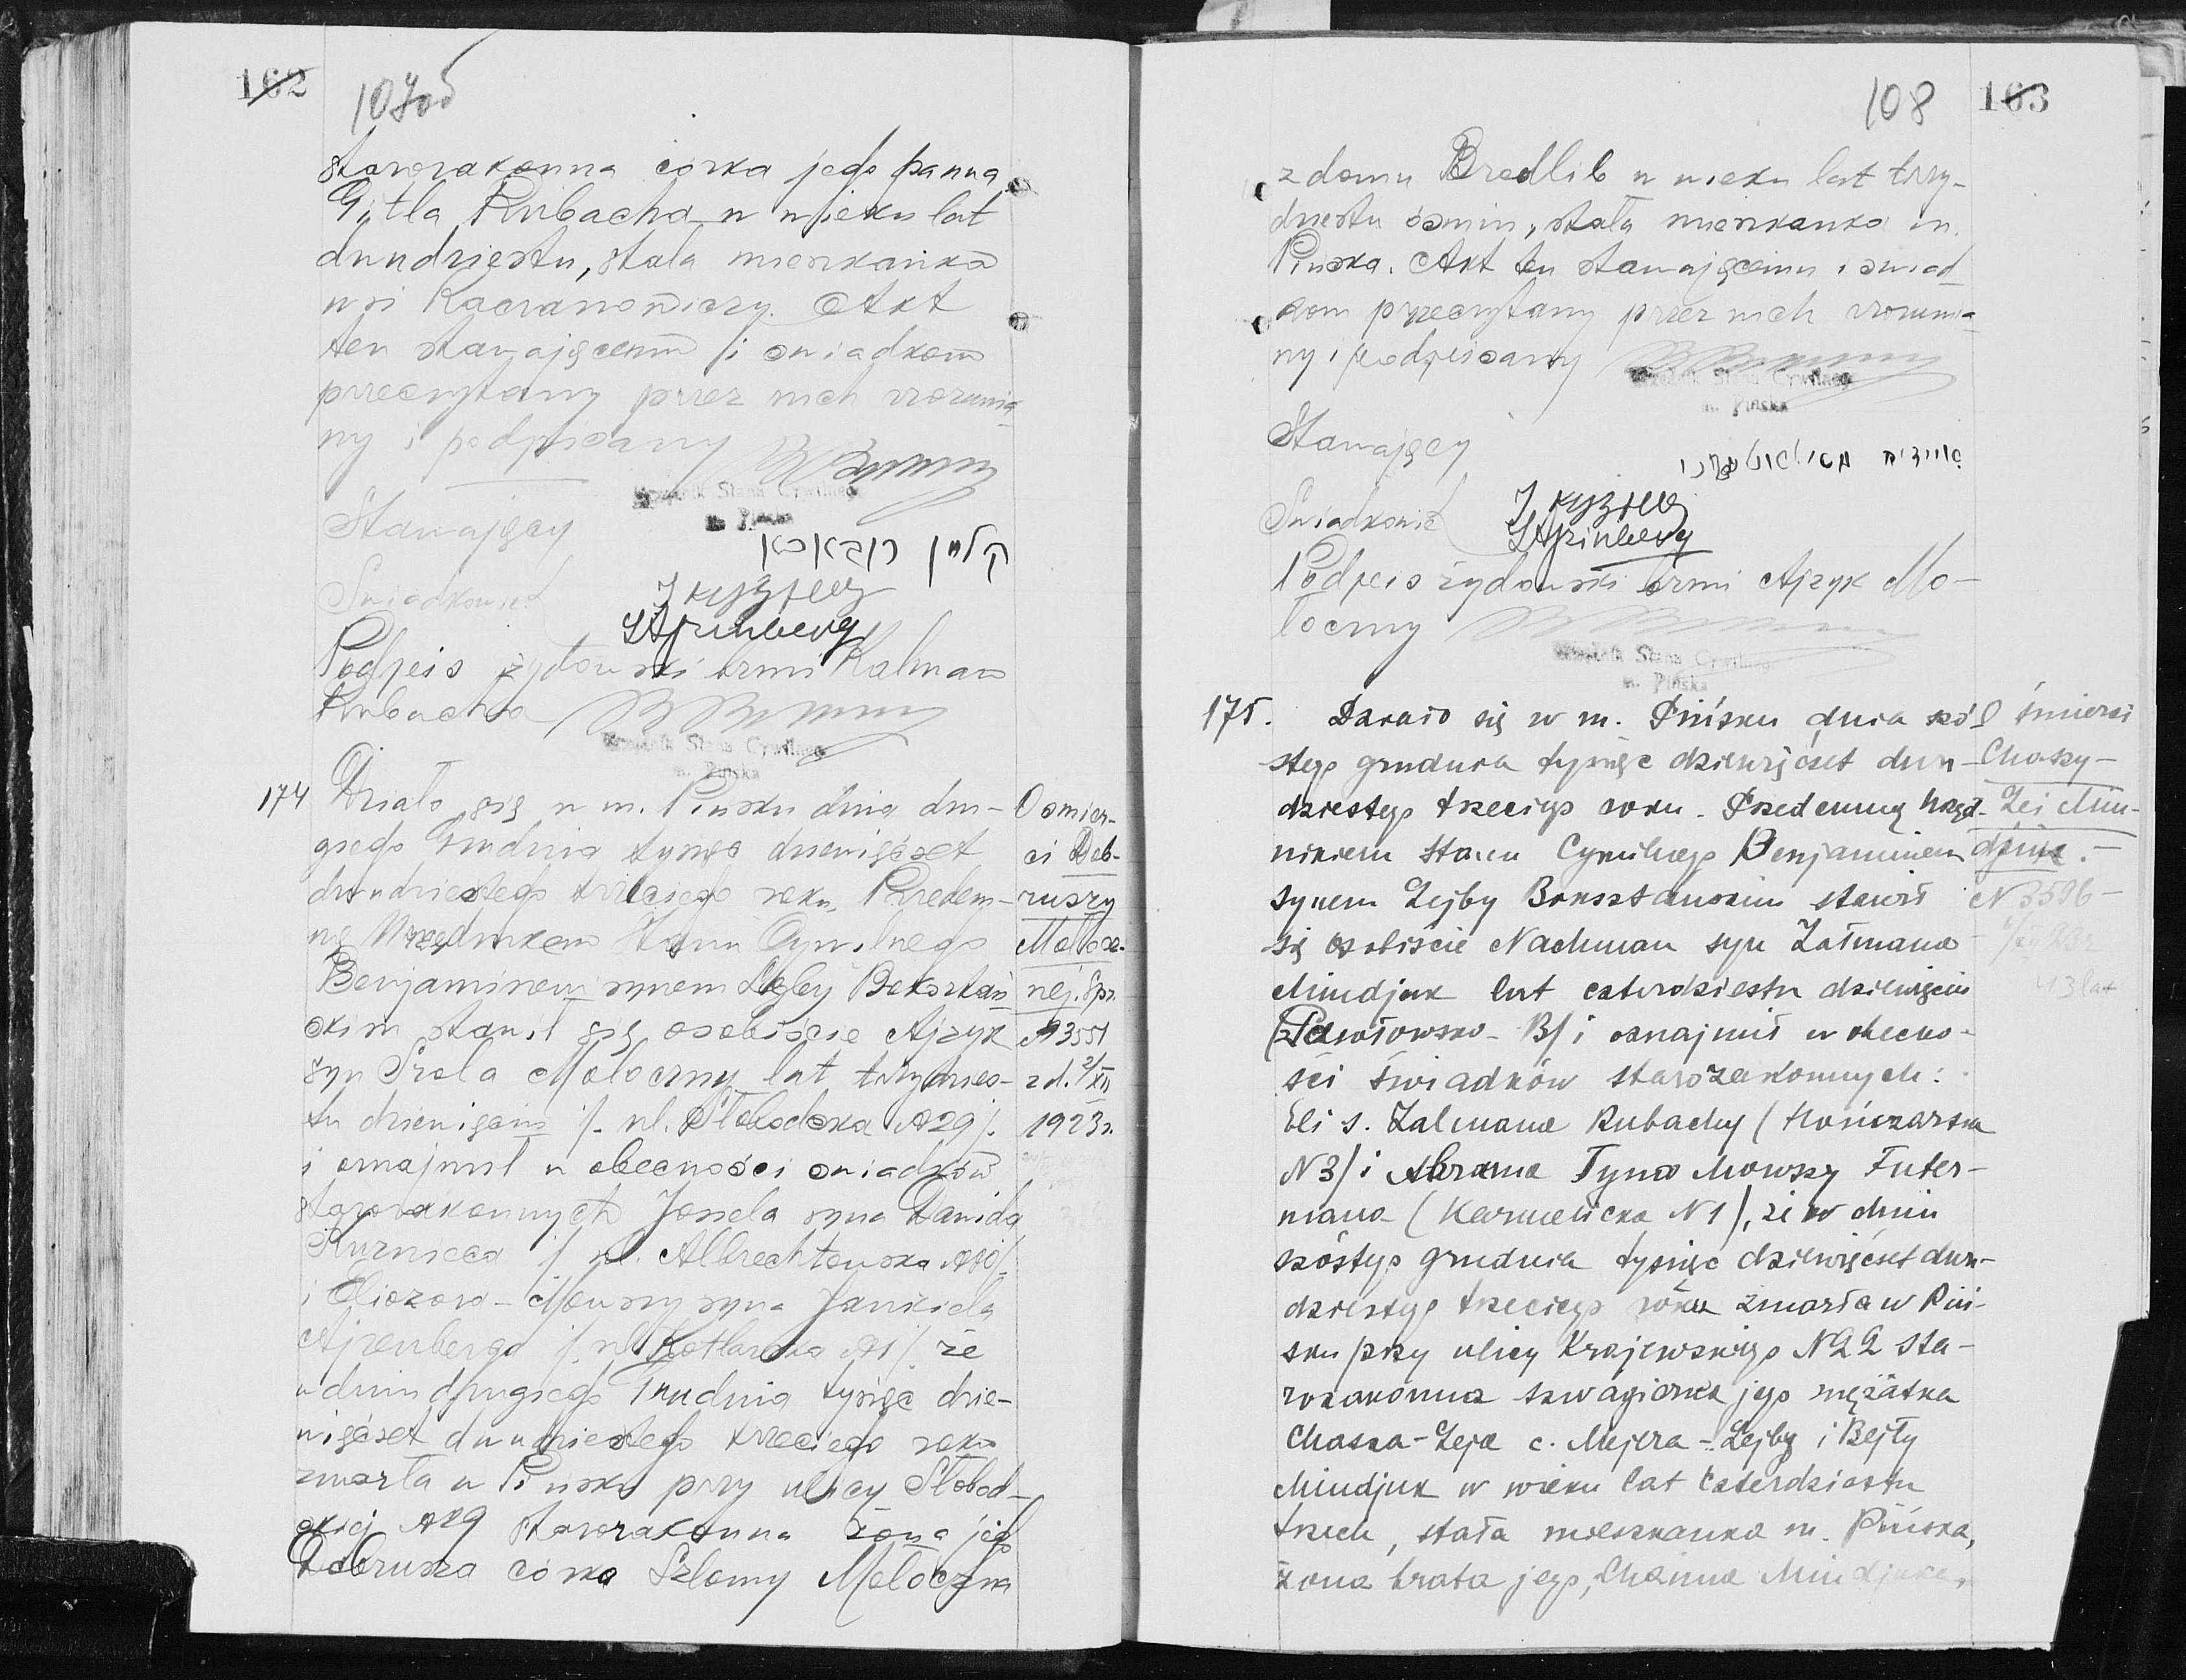 162
107 об
starozakonna córka jego panna
Gitla Rubacha w wieku lat
dwudziestu, stała mieszkanka
wsi Kaczanowiczy. Akt
ten stawającemu i świadkom
przeczytany przez nich zrozumia-
ny i podpisany
Urzędnik Stanu Cywilnego
m. Pińska
Stawający
קלמן רובאכא
Świadkowie
Podpis żydowski brzmi Kalman
Rubacha
Urzędnik Stanu Cywilnego
m. Pińska
174 Działo się w m. Pińsku dnia dru-
giego Grudnia tysiąc dziewięćset
dwudziestego trzeciego roku. Przedem-
ną Urzędnikem Stanu Cywilnego
Benjaminem synem Lejby Boksztań
skim stawił się osobiście Ajzyk
syn Srola Moloczny lat trzydzies-
tu dziewięciu /. ul. Słobodska N29 /.
i oznajmił w obecności świadków
starozakonnych Joszela syna Dawida
/. ul. Albrechtowska
i Eliozara-Mowszy syna Jankiela
Ajzenberga /. ul. Kotlarska N1 /. że
w dniu drugiego Grudnia tysiąc dzie-
więćset dwudziestego trzeciego roku
zmarła w Pińsku przy ulicy Słobod-
skiej N29 starozakonna żona jego
Dobrusza córka Szlomy Moloczna
O śmier-
ci Dob-
ruszy
Mołocz-
nej. Spr.
N3551
z d. 2/XII
1923 r.
108
163
z domu Bredlib w wieku lat trzy-
dziestu ośmiu, stała mieszkanka m.
Pińska. Akt ten stawającemu i świad
kom przeczytany przez nich zrozumia-
ny i podpisany
Urzędnik Stanu Cywilnego
m. Pińska
Stawający
Świadkowie
Podpis żydowski brzmi Ajzyk Mo-
łoczny
Urzędnik Stanu Cywilnego
m. Pińska
175. Działo się w m. Pińsku dnia szó
stego grudnia tysiąc dziewięćset dwu-
dziestego trzeciego roku. Przedemną Urzęd-
nikiem Stanu Cywilnego Benjaminem
synem Lejby Boksztańskim stawił
się osobiście Nachman syn Załmana
Mindjuk lat czterdziestu dziewięciu
i oznajmił w obecno-
ści świadków starozakonnych:
Eli s. Zalmana Rubachy (Hończarska
N3) i Abrama syna Mowszy Futer-
mana (Karmelicka N1), że w dniu
szóstego grudnia tysiąc dziewięćset dwu-
dziestego trzeciego roku zmarła w Piń-
sku przy ulicy Krajewskiego N22 sta-
rozakonna szwagierka jego mężatka
Chaska-Zeja c. Mejera-Lejby i Bejły
Mindjuk w wieku lat czterdziestu
trzech, stała mieszkanka m. Pińska,
żona brata jego, Chaima Mindjuka.
O śmierci
Chasky-
Zei Min-
djuk.-
N 3596-
43 lat